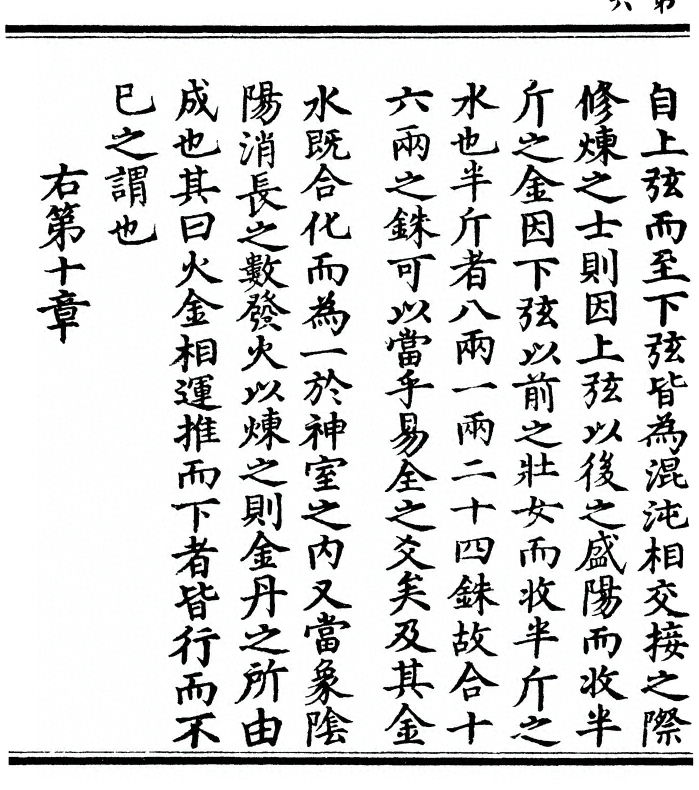 自上弦而至下弦皆為混沌相交接之際
修煉之士則因上弦以後之盛陽而收半
斤之金因下弦以前之壯女而收半斤之
水也半斤者八兩一兩二十四銖故合十
六兩之銖可以當乎易全之爻矣及其金
水既合化而為一於神室之內又當象陰
陽消長之數發火以煉之則金丹之所由
成也其曰火金相運推而下者皆行而不
已之謂也
右第十章